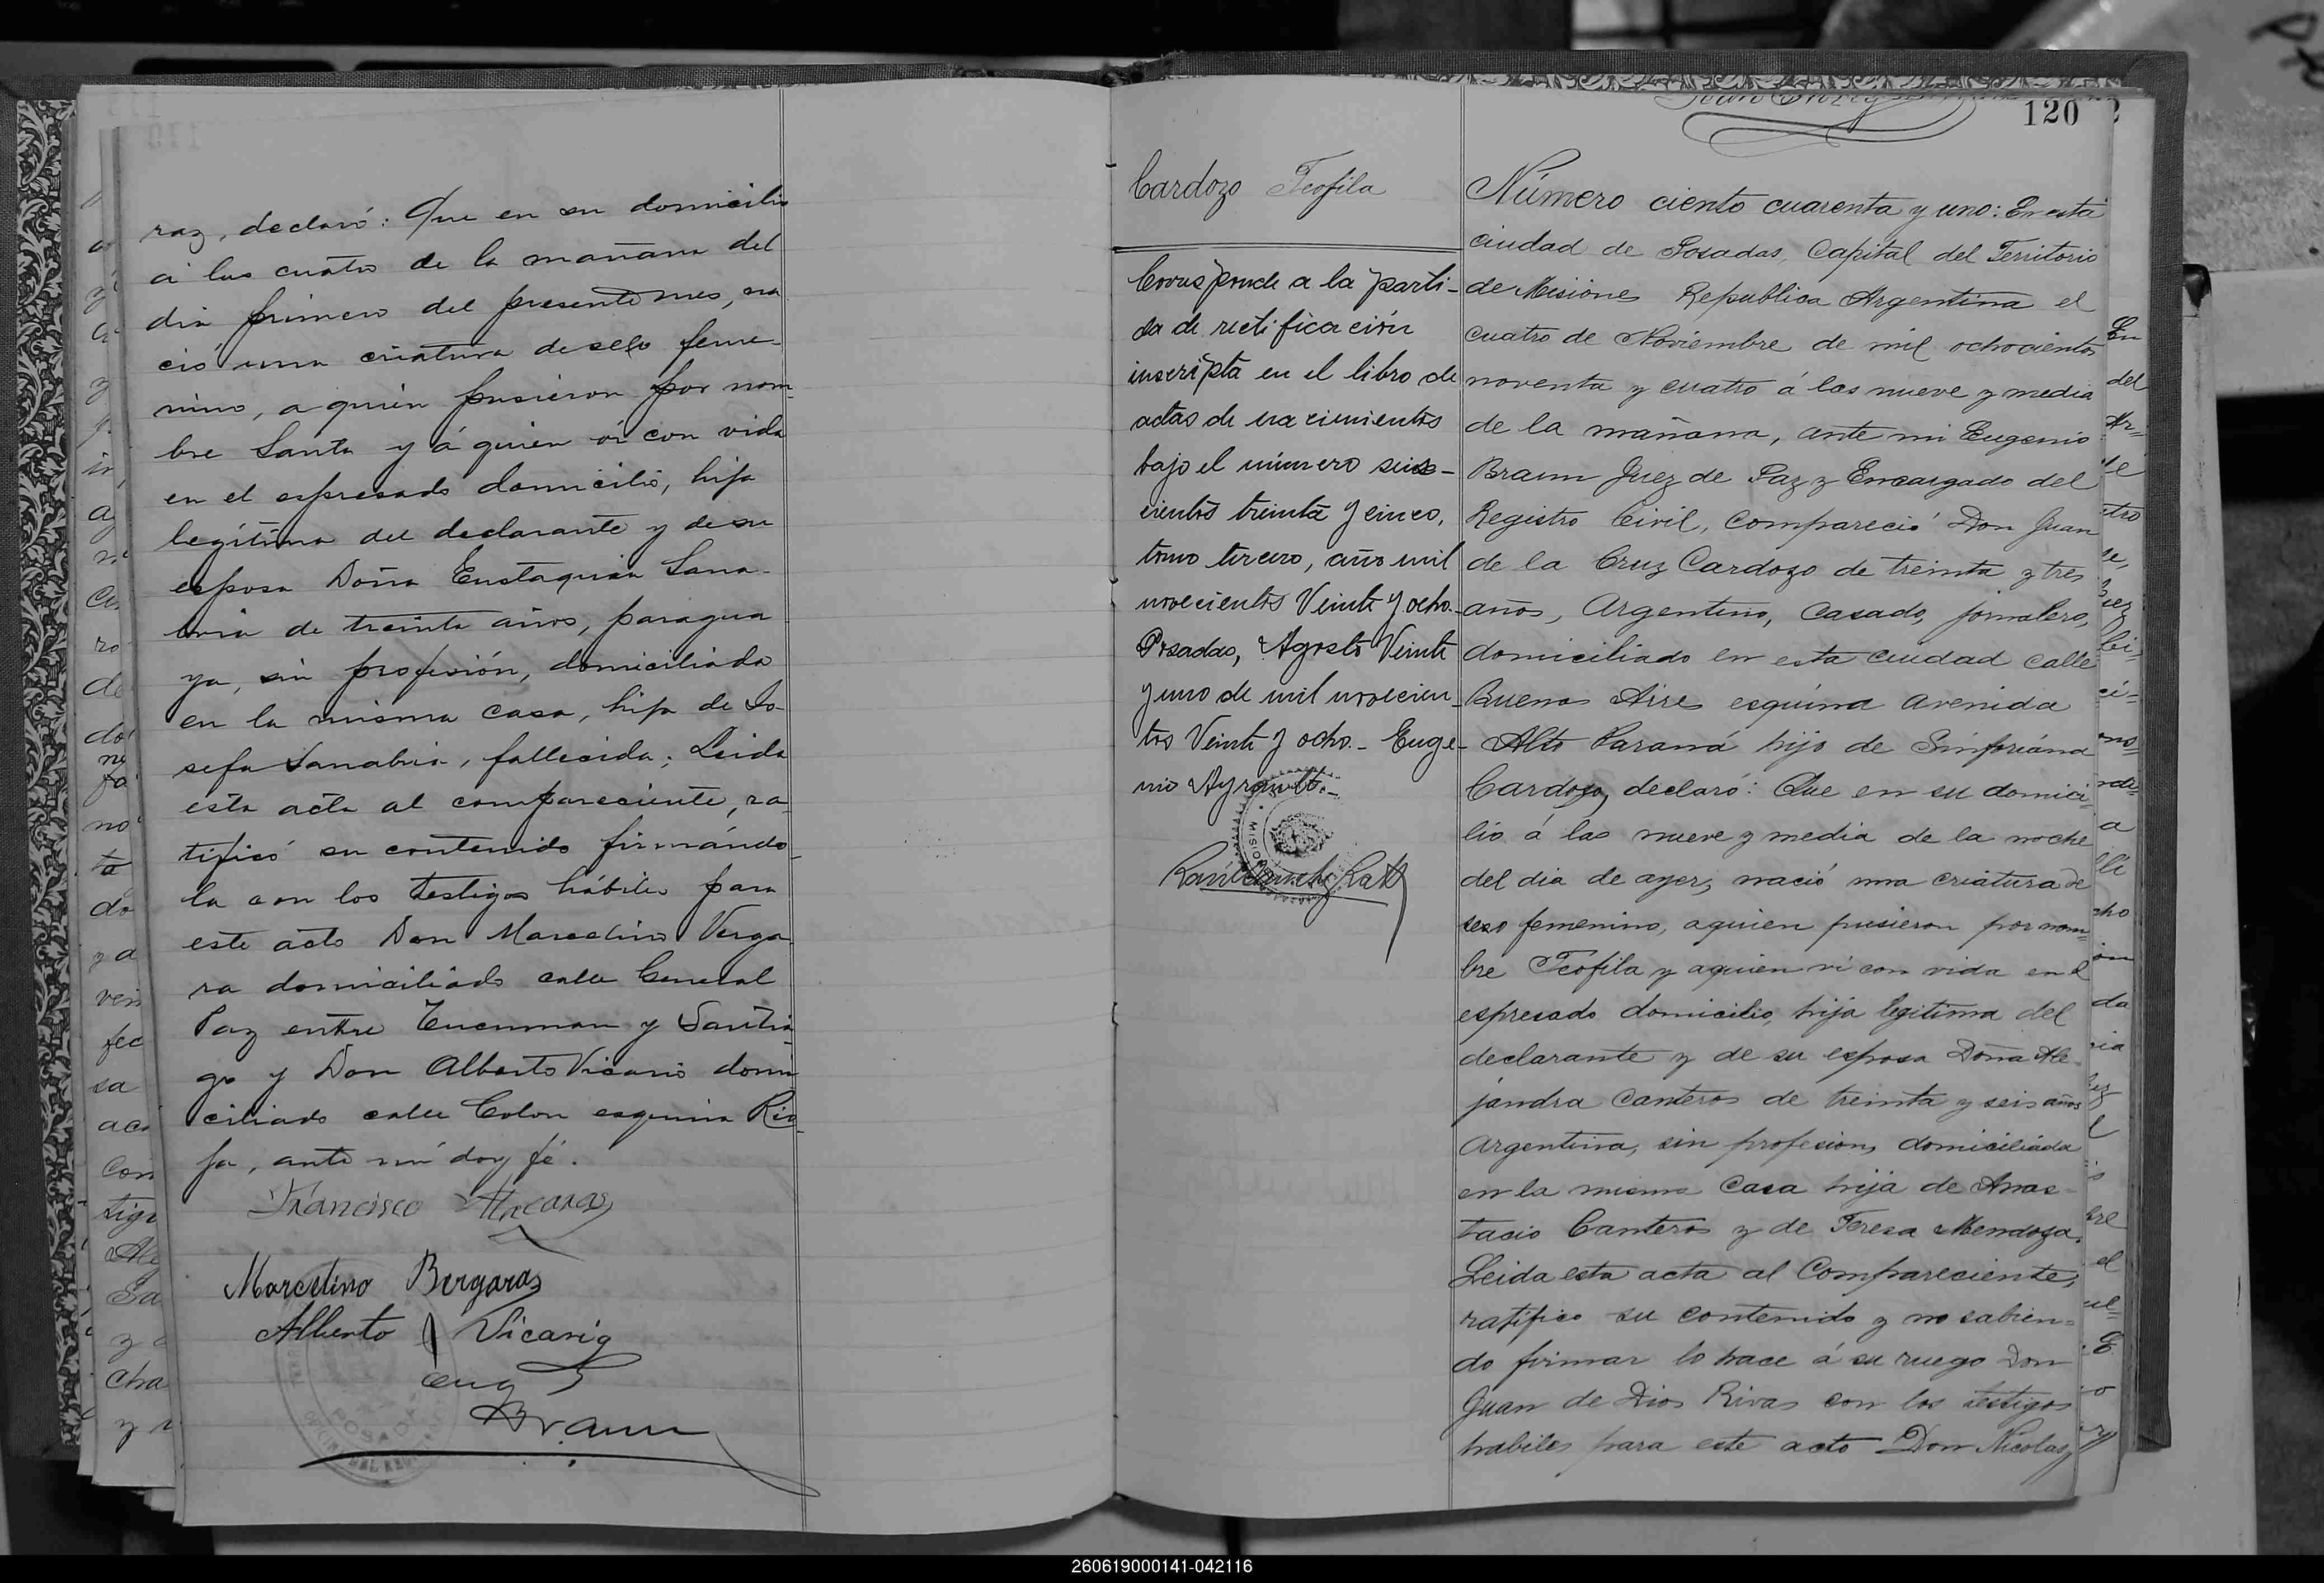 raz, declaró: Que en su domicilio
á las cuatro de la mañana del
dia primero del presente mes, na
ció una criatura de sexo feme-
nino, a quien pusieron por nom-
bre Santa y á quien ví con vida
en el espresado domicilio, hija
legítima del declarante y de su
esposa Doña Eustaquia Sana-
bria de treinta años, paragua
ya, sin profesión, domiciliada
en la misma casa, hija de Jo-
sefa Sanabria, fallecida; Leida
esta acta al compareciente, ra-
tificó su contenido firmándo-
la con los testigos hábiles para
este acto Don Marcelino Verga-
ra domiciliado calle General
Paz entre Tucuman y Santia-
go y Don Alberto Vicario domi
ciliado calle Colon esquina Rio-
ja, ante mí doy fé.
Francisco
Marcelino Bergara
Alberto Vicario
Eug
Braun
120
Cardozo Teofila
Corresponde a la parti-
da de rectificación
inscripta en el libro de
actas de nacimientos
bajo el número seis-
cientos treinta y cinco,
tomo tercero, año mil
novecientos Veinte y ocho.-
Posadas, Agosto Veinte
y uno de mil novecien-
tos Veinte y ocho.- Euge-
nio
Número ciento cuarenta y uno: En esta
ciudad de Posadas, Capital del Territorio
de Misiones Republica Argentina el
cuatro de Noviembre de mil ochocientos
noventa y cuatro á las nueve y media
de la mañana, ante mi Eugenio
Braun Juez de Paz y Encargado del
Registro Civil, compareció Don Juan
de la Cruz Cardozo de treinta y tres
años, Argentino, casado, jornalero,
domiciliado en esta ciudad calle
Buenos Aires esquina avenida
Alto Paraná hijo de Sinforiana
Cardozo, declaró: Que en su domici-
lio á las nueve y media de la noche
del dia de ayer, nació una criatura de
sexo femenino, aquien pusieron por nom-
bre Teofila y aquien vi con vida en el
espresado domicilio, hija legitima del
declarante y de su esposa Doña Ale-
jandra Canteros de treinta y seis años
Argentina, sin profesion, domiciliada
en la misma casa hija de Anas-
tacio Canteros y de Teresa Mendoza.
Leida esta acta al Compareciente,
ratifico su contenido y no sabien-
do firmar lo hace á su ruego Don
Juan de Dios Rivas con los testigos
habiles para este acto Don Nicolas
260619000141-042116